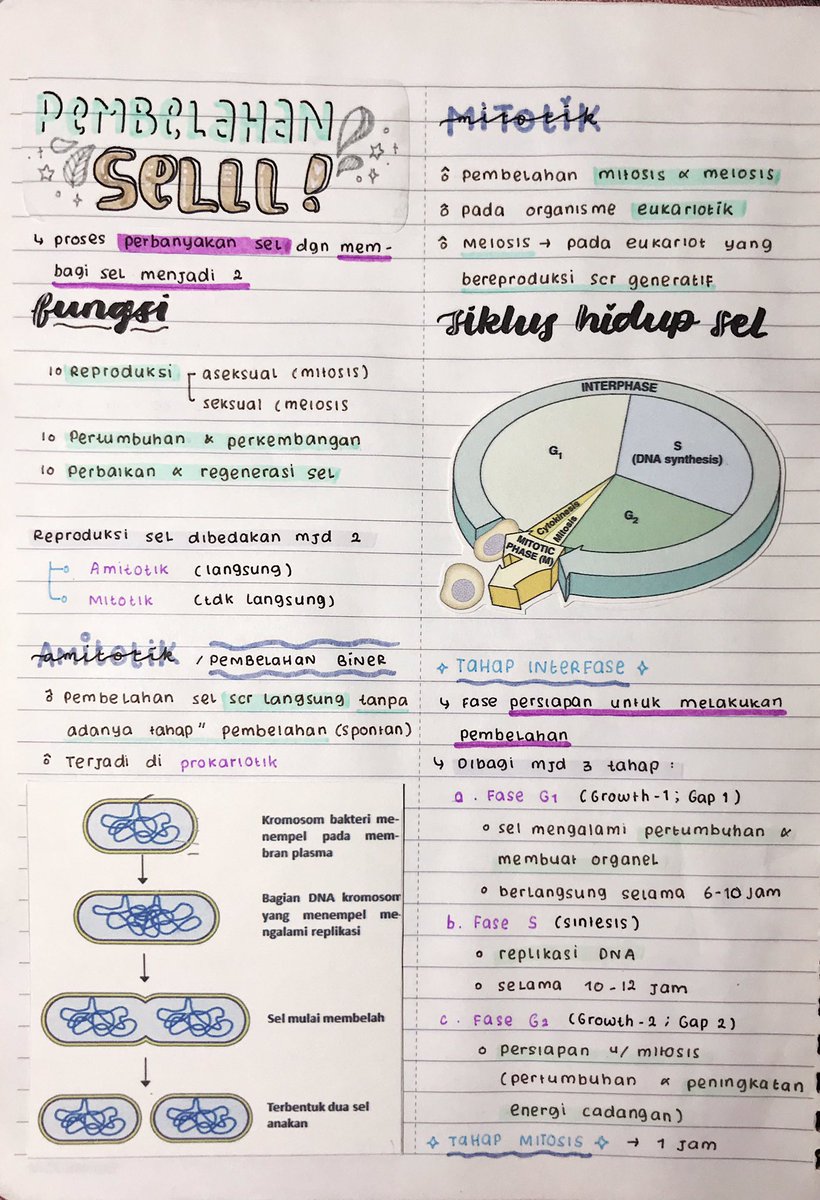 PEMBELAHAN
SELLL!
↳ proses perbanyakan sel dgn mem-
bagi sel menjadi 2
fungsi
10 Reproduksi
aseksual (mitosis)
seksual (meiosis
10 Pertumbuhan & perkembangan
10 Perbaikan & regenerasi sel
Reproduksi sel dibedakan mjd 2
Amitotik (langsung)
Mitotik (tdk langsung)
Amitotik / PEMBELAHAN BINER
Pembelahan sel scr langsung tanpa
adanya tahap" pembelahan (spontan)
Terjadi di prokariotik
Kromosom bakteri me-
nempel pada mem-
bran plasma
Bagian DNA kromosom
yang menempel me-
ngalami replikasi
Sel mulai membelah
Terbentuk dua sel
anakan
MITOTIK
Pembelahan mitosis & meiosis
pada organisme eukariotik
Meiosis → pada eukariot yang
bereproduksi scr generatif
siklus hidup sel
INTERPHASE
G1
S
(DNA synthesis)
G2
Cytokinesis
Mitosis
MITOTIC
PHASE (M)
TAHAP INTERFASE
↳ Fase persiapan untuk melakukan
pembelahan
↳ Dibagi mjd 3 tahap :
a. Fase G1 (Growth-1; Gap 1)
sel mengalami pertumbuhan &
membuat organel
berlangsung selama 6-10 jam
b. Fase S (sintesis)
replikasi DNA
selama 10-12 jam
c. Fase G2 (Growth-2; Gap 2)
persiapan u/ mitosis
(pertumbuhan & peningkatan
energi cadangan)
TAHAP MITOSIS → 1 jam